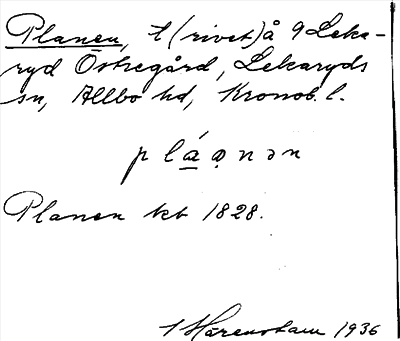 Planen, t (rivet) å 9 Leka-
ryd Östregård, Lekaryds
sn, Allbo hd, Kronob. l.
pláo̤nən
Planen tkt 1828.
Härenstam 1936